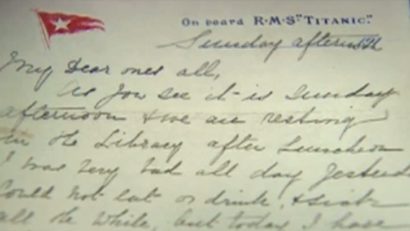 On board R·M·S "TITANIC".
Sunday afternoon
My Dear ones all,
As you see it is Sunday
afternoon & we are resting
in the Library after Luncheon
I was very bad all day Yesterday
Could not eat or drink, & sick
all the while, but today I have